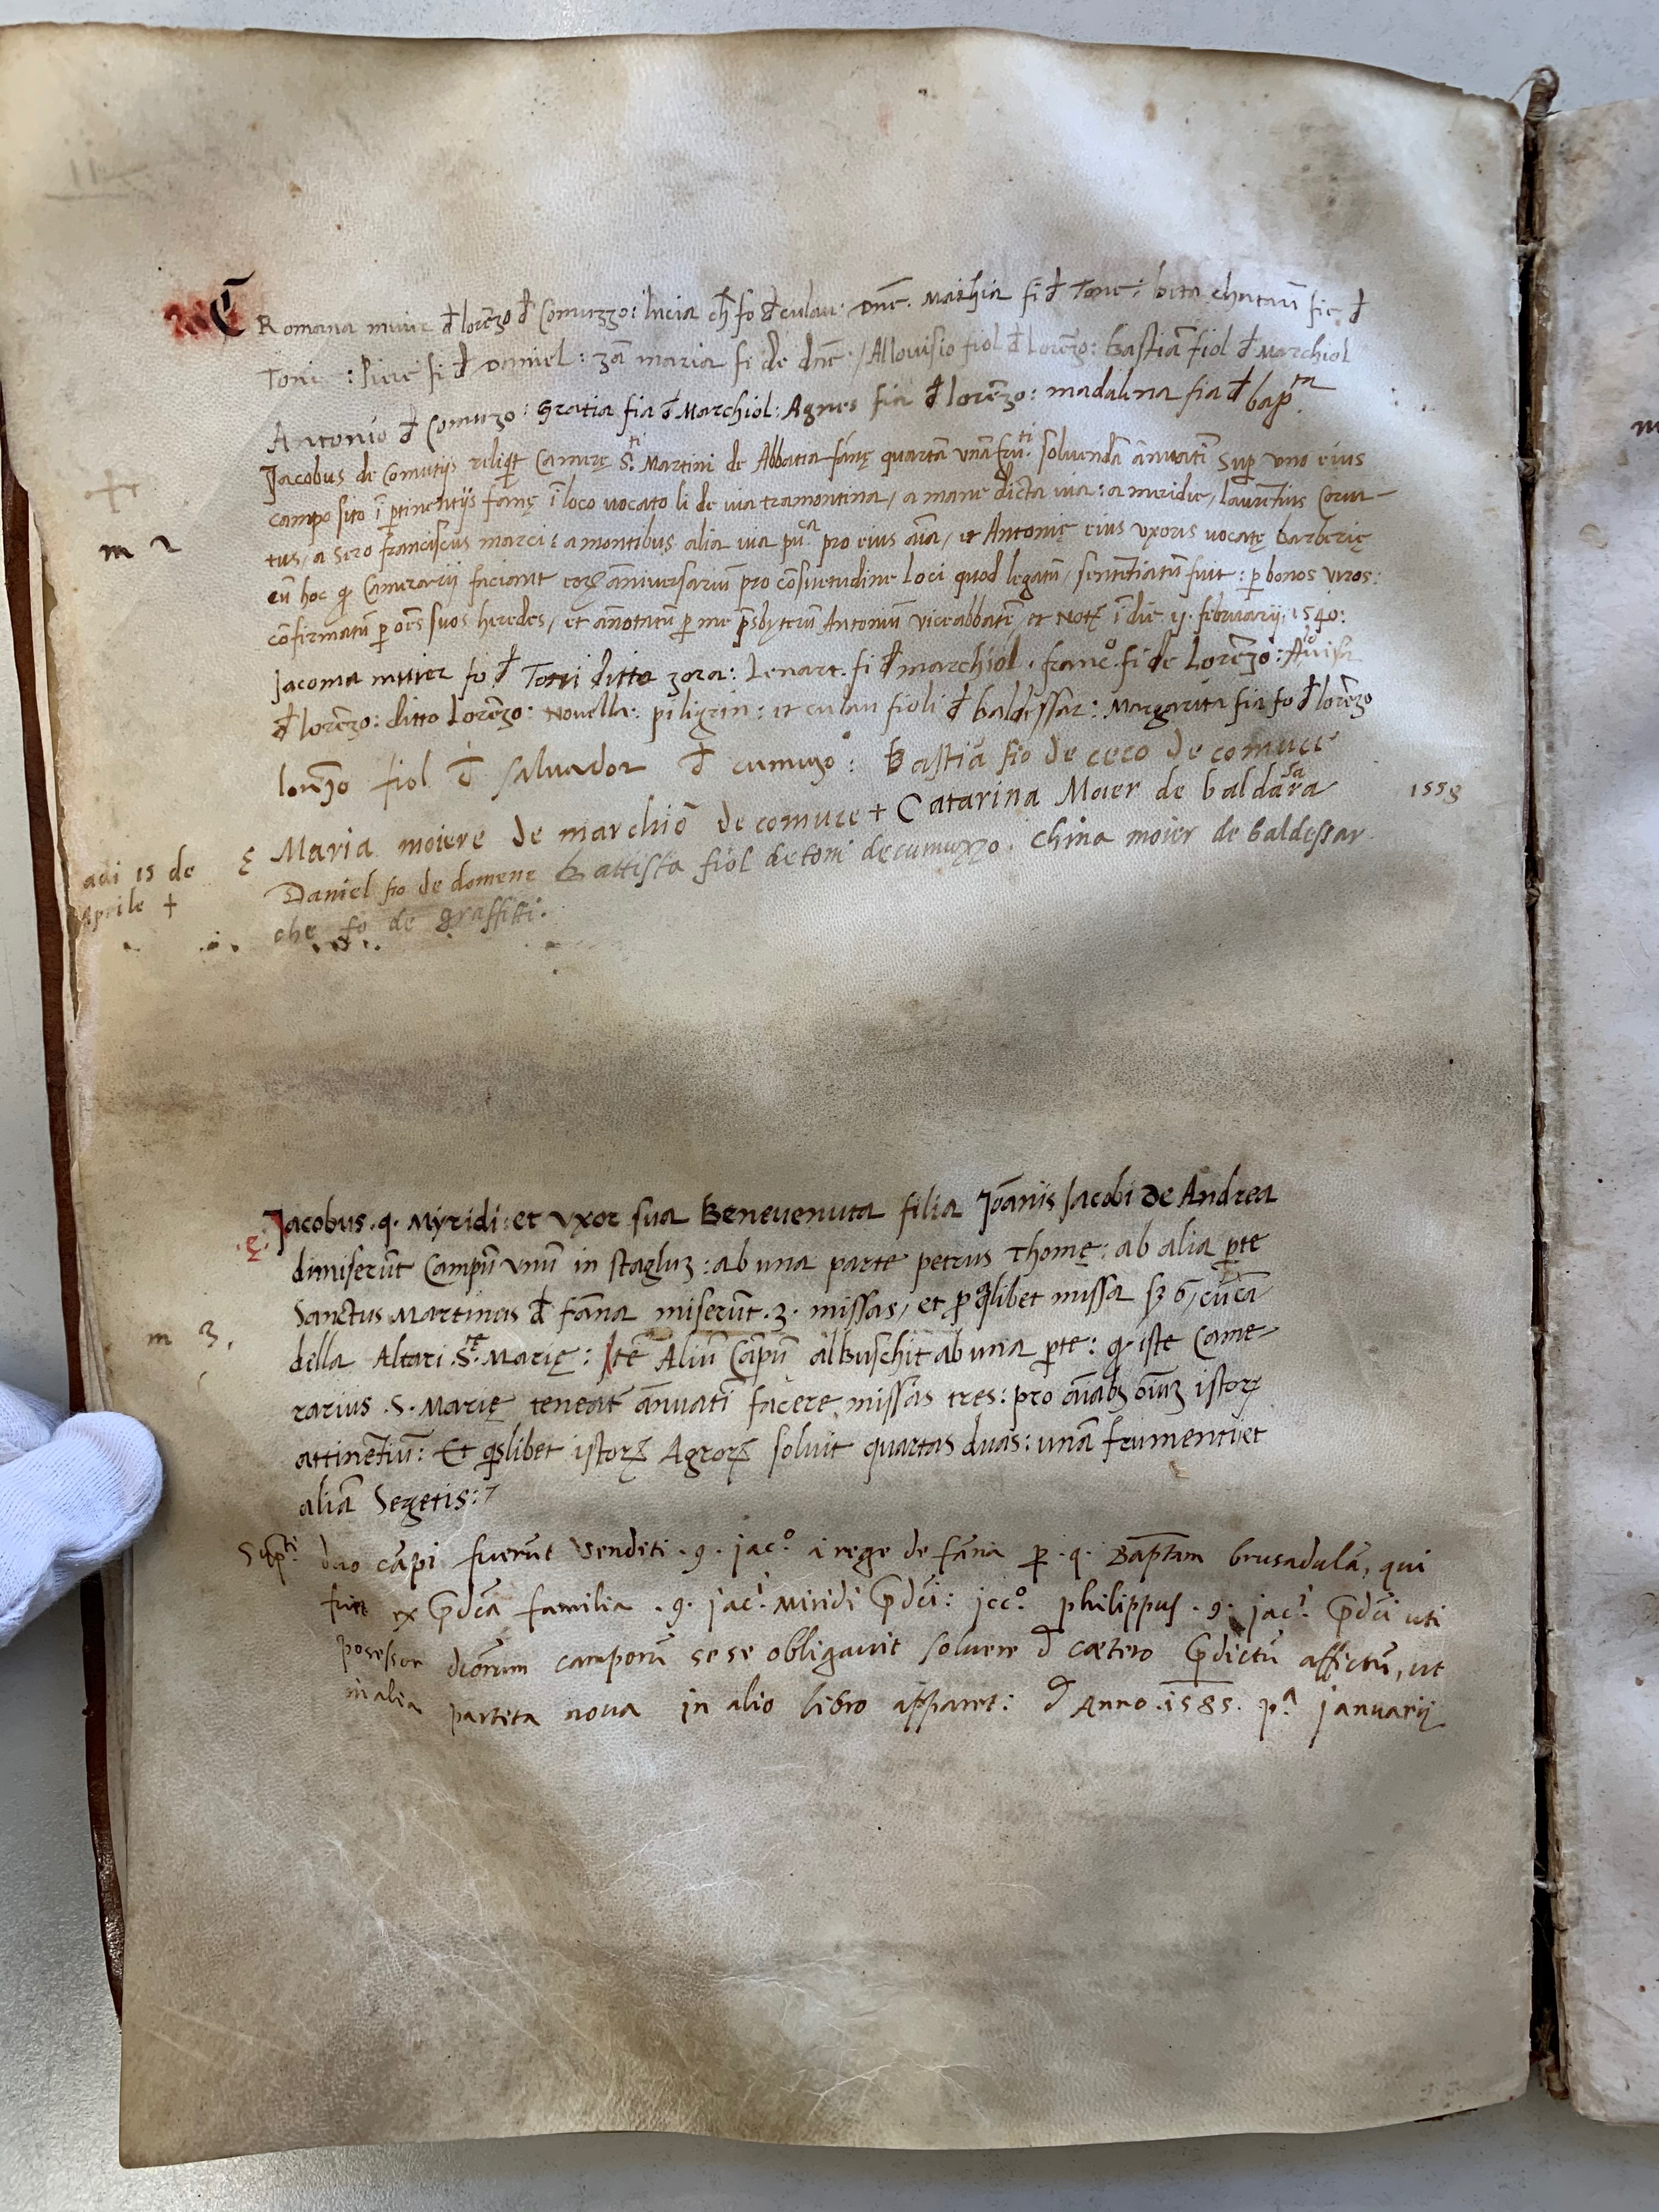 Romana muier đ lorēzo đ Comuzzo: lucia ch̄ fo đ culau: Dnē. Mathia fi đ Tone: beta chatari fie đ
Toni: Piere fi đ Daniel: zā maria fi de dnē:/ Allouisio fiol đ Lorēzo: Bastiā fiol đ Marchiol
Antonio đ Comuzo: Gratia fia đ Marchiol: Agnes fia đ lorēzo: madalina fia đ bapta
Jacobus de Comutijs reliqt Camerę S.ti Martini de Abbatia fānę quartā vnā fru.ti soluendā ānuatī sup uno eius
campo sito ī ptinentijs fanę ī loco uocato li de uia tramontina, a mane dicta uia: a meridie, laurētius Coru-
tus, a sero franciscus marci: a montibus alia uia pu.ca pro eius aīa, et Antonię eius vxoris uocatę barberię
cū hoc q Camerarij faciant eorꝝ āniversariū pro cōsuetudine loci quod legatū, sentētiatū fuit: p bonos viros:
cōfirmatū p oēs suos heredes, et ānotatū p me psbyterū Antoniū viceabbatē, et Notꝝ ī die 11. februarij: 1540:
m 2
Jacoma muier fo đ Toni ditto zora: Lenart. fi đ marchiol. franc.o fi de Lorēzo: Auisa
đ lorēzo: ditto Lorēzo: Nouella: piligrin: et culau fioli đ baldessar: Margarita fia fo đ lorēzo
lorēzo fiol đ saluador đ cumuzo: Bastiā fio de ceco de comuce
Maria moiere de marchiō de comuze + Catarina Moier de baldasara 1558
adi 15 de Aprile + Daniel fio de domene Battista fiol de toni de cumuzzo. China moier de baldessar
che fo de graffitti.
Jacobus .q. Myridi: et vxor sua Beneuenuta filia Joānis Jacobi de Andrea
dimiserūt Campū vnū in stagluz: ab una parte petrus Thomę: ab alia pte
Sanctus Martinus đ fāna miserūt .3. missas, et p qlibet missa ẞ 6, cū cā
m 3. della Altari S.tę Marię: Itē Aliū Cāpū al Buschit ab una pte: q iste Came-
rarius .S. Marię teneat ānuatī facere missas tres: pro aīabz oīuz istorꝝ
attinētiū: Et qslibet istorꝝ Agrorꝝ soluit quartas duas: unā frumenti et
aliā Segetis:
Supti duo cāpi fuerūt venditi .q. jac.o a rege de fāna p .q. Baptam brusadulā, qui
fuit ex pdcā familia .q. jac.i Miridi pdci: icc.o philippus .q. jac.i pdci uti
posessor dcorum camporū sese obligauit soluere đ cætero pdictū affictū, ut
in alia partita noua in alio libro apparet: đ Anno .1585. p.a januarij